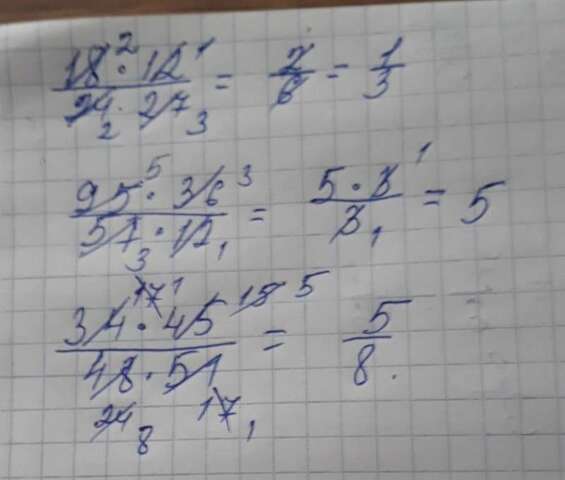 18² · 12¹ / 24₂ · 27₃ = 2/6 = 1/3
95⁵ · 36³ / 57₃ · 12₁ = 5 · 3¹ / 3₁ = 5
34 17 1 · 45 15 5 / 48 24 8 · 51 17 1 = 5/8.